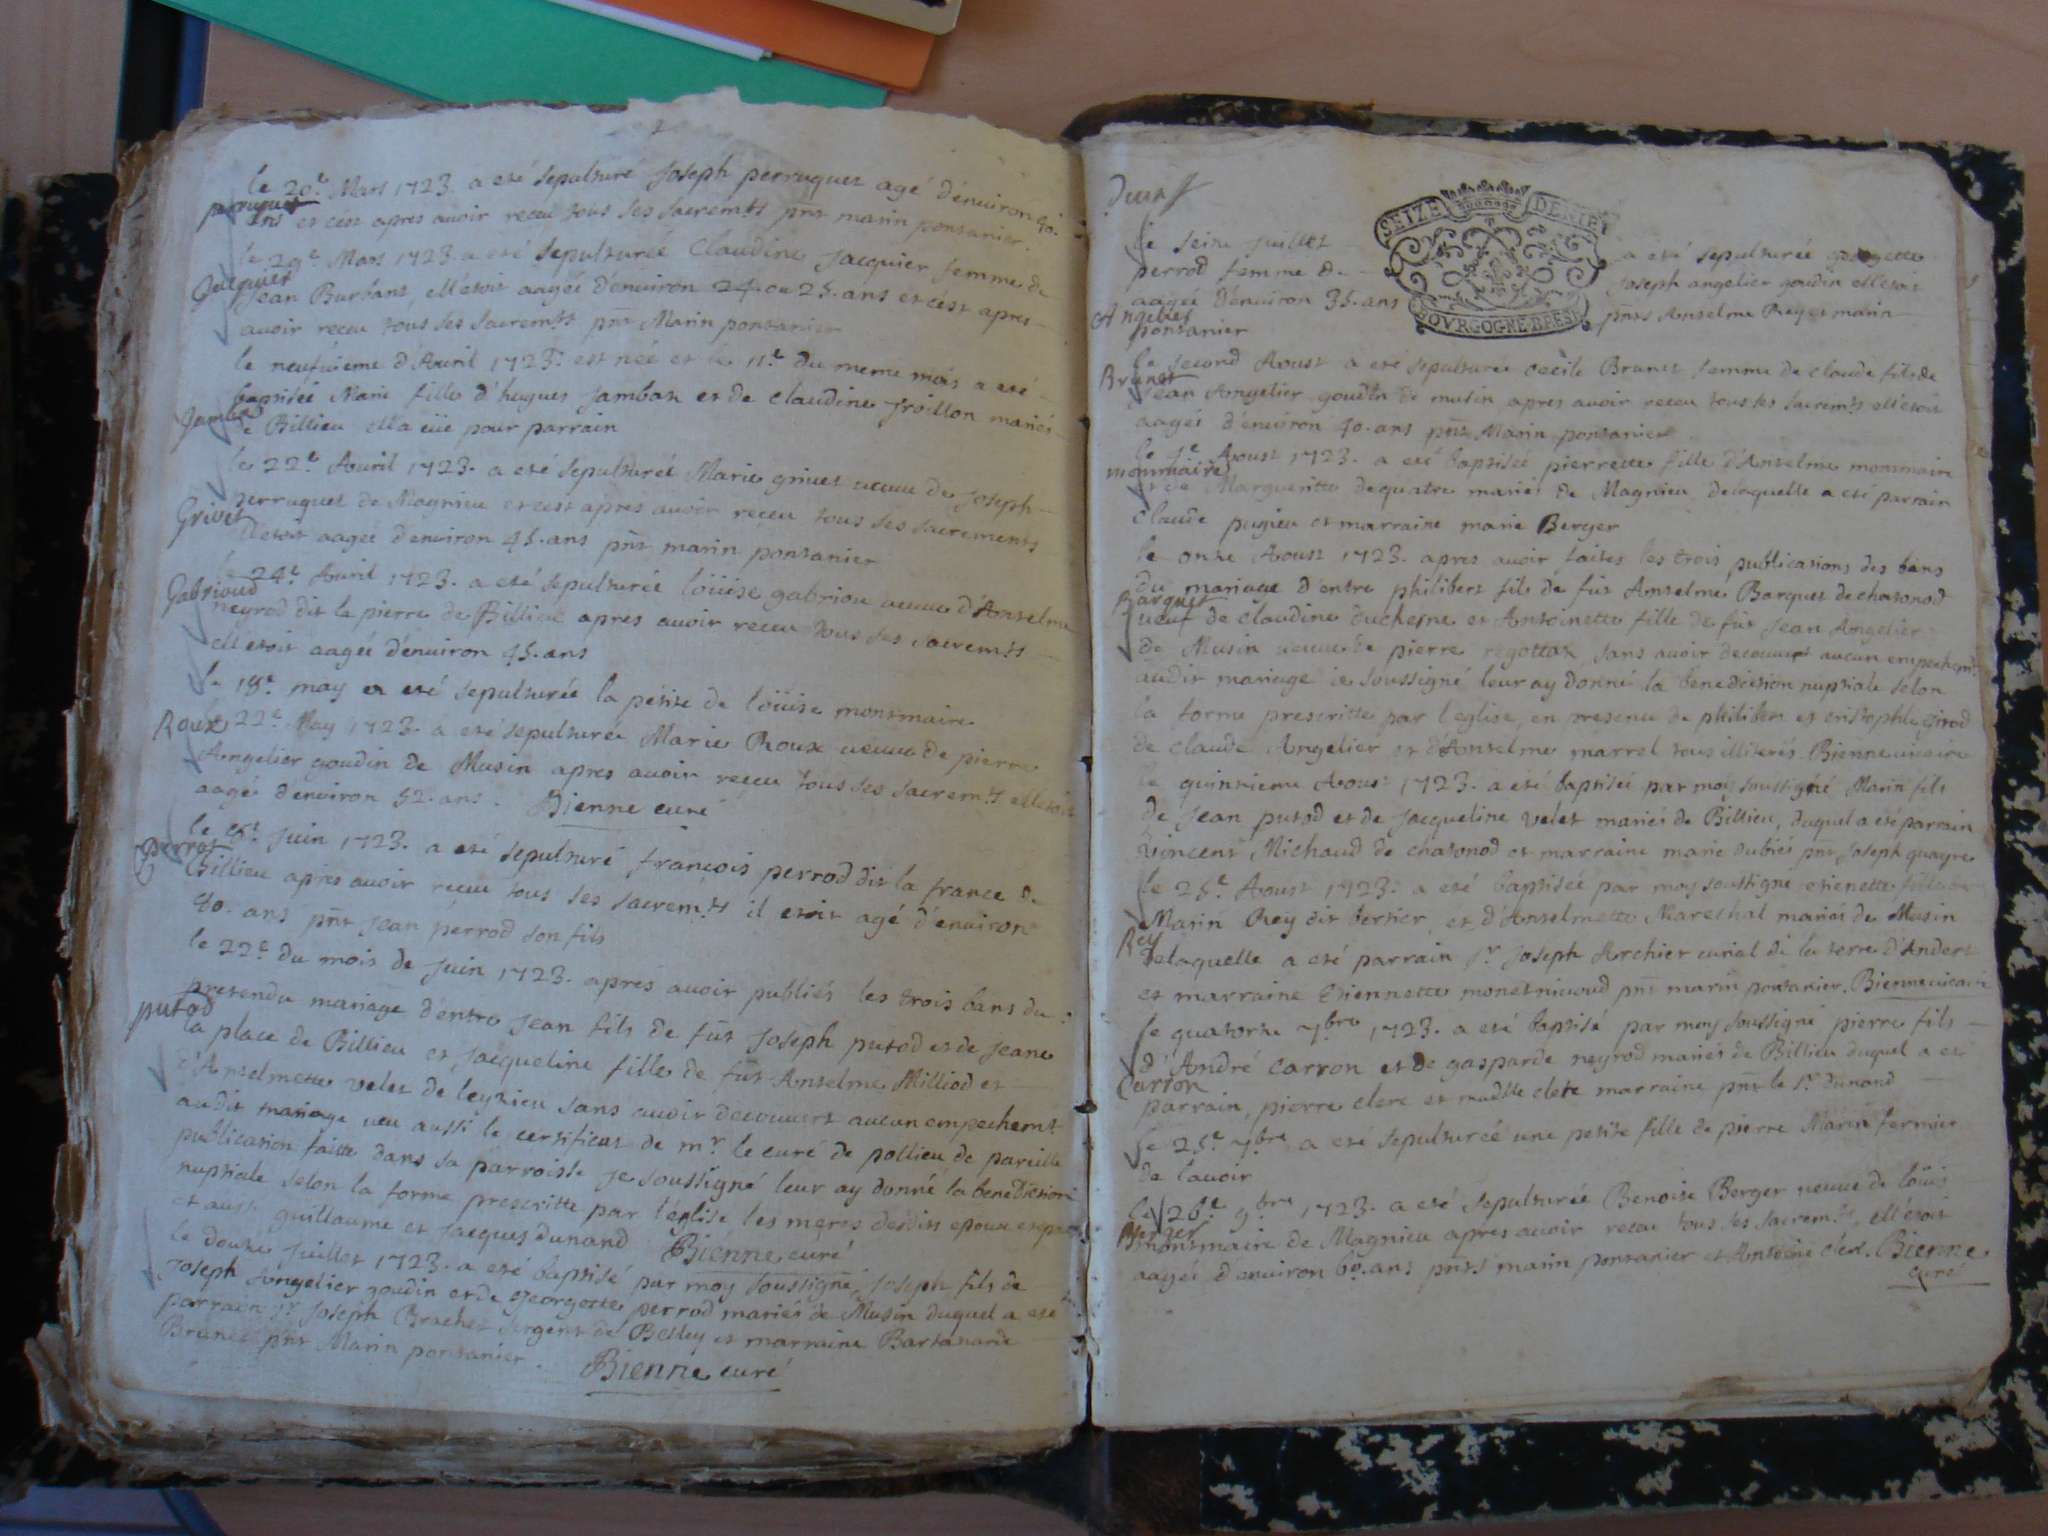 le 20e Mars 1723. a eté sepulturé Joseph perruquet agé d'énuiron 40.
perruquet
ans et cest apres auoir receu tous ses sacremts pñt marin pontanier.
le 29e Mars 1723 a eté sepulturéé Claudine Jacquier femme de
Jacquier
Jean Burlant, ell'etoit aagéé d'énuiron 24. ou 25. ans et c'est apres
auoir receu tous ses sacremts pñt Marin pontanier
le neufuieme d'Auril 1723. est néé et le 11e du meme mois a eté
baptiséé Marie fille d'hugues Jambax et de claudine froillon mariés
Jambax
de Billieu ell'a eüe pour parrain
le 22e Auril 1723. a eté sepulturéé Marie griuet ueuue de Joseph
perruquet de Magnieu et cest apres auoir receu tous ses sacrements
Grivet
ell'etoit aagéé d'enuiron 45. ans pñt marin pontanier
le 24e Auril 1723. a eté sepulturéé loüise gabriou ueuue d'Anselme
Gabrioud
neyrod dit la pierre de Billieu apres auoir receu tous ses sacremts
ell'etoit aagéé d'énuiron 45. ans
le 18e may a eté sepulturéé la petite de loüise montmaire
le 22e May 1723. a eté sepulturéé Marie Roux ueuue de pierre
Roux
Angelier goudin de Musin apres auoir receu tous ses sacremts elletoit
aagéé d'énuiron 52. ans. Bienne curé
le juin 1723. a eté sepulturé francois perrod dit la france de
perrot
Billieu apres auoir receu tous ses sacremts il etoit agé d'énuiron
40. ans pñt Jean perrod son fils
le 22e du mois de Juin 1723. apres auoir publiés les trois bans du
pretendu mariage d'entre Jean fils de fut Joseph putod et de Jeane
putod
la place de Billieu et Jacqueline fille de fut Anselme Milliod et
d'Anselmette velet de leyzieu sans auoir decouuert aucun empechemt
audit mariage ueu aussi le certificat de mr le curé de pollieu de pareille
publication faitte dans sa parroisse je soussigné leur ay donné la benediction
nuptiale selon la forme prescritte par l'église les meres desdits epoux
et aussi guillaume et Jacques dunand Bienne curé
le douze Juillet 1723. a eté baptisé par moy soussigné Joseph fils de
Joseph Angelier goudin et de georgette perrod mariés de Musin duquel a eté
parrain sr Joseph Brachet sergent de Belley et marraine
Brunet pñt Marin pontanier. Bienne curé
SEIZE DENIER
BOVRGOGNE BRESSE
le seize juillet a eté sepulturéé georgette
perrod femme de Joseph angelier goudin ell'etoit
aagéé d'énuiron 35. ans pñts Anselme Rey et marin
Angelier
pontanier
le second Aoust a eté sepulturéé cecile Brunet femme de claude fils de
Brunet
Jean Angelier goudin de musin apres auoir receu tous ses sacremts ell'etoit
aagéé d'énuiron 40. ans pñt Marin pontanier
le Aoust 1723. a eté baptiséé pierrette fille d'Anselme montmaire
montmaire
et de Margueritte dequatre mariés de Magnieu, delaquelle a eté parrain
claude pugieu et marraine marie Berger
le onze Aoust 1723. apres auoir faites les trois publications des bans
du mariage d'entre philibert fils de fut Anselme Barquet de chatonod
Barquet
ueuf de claudine duchesne et Antoinette fille de fut Jean Angelier
de Musin ueuue de pierre regottax, sans auoir decouuert aucun empechemt
audit mariage ie soussigné leur ay donné la benediction nuptiale selon
la forme prescritte par l'eglise, en presence de philibert et cristophle girod
de claude Angelier et d'Anselme marrel tous illiterés. Bienne uicaire
le quinzieme Aoust 1723. a eté baptisé par moy soussigné Marin fils
de Jean putod et de Jacqueline velet mariés de Billieu, duquel a eté parrain
vincent Michaud de chatonod et marraine marie dubiés pnt Joseph
le 25e Aoust 1723. a eté baptiséé par moy soussigné etienette fille de
Marin Rey dit bertier et d'Anselmette Mareshal mariés de Musin
Rey
delaquelle a eté parrain sr Joseph Archier curial de la terre d'Andert
et marraine Etiennette monetniuoud pñt marin pontanier. Bienne uicaire
le quatorze 7bre 1723. a eté baptisé par moy soussigné pierre fils
d'André carron et de gasparde neyrod mariés de Billieu duquel a eté
Carron
parrain, pierre clerc et madlle clete marraine pñt le sr dunand
le 25e 7bre a eté sepulturéé une petite fille de pierre Marin fermier
de lauoir
le 26e 9bre 1723. a eté sepulturéé Benoise Berger ueuue de loüis
Berger
montmaire de Magnieu apres auoir receu tous ses sacremts, ell'étoit
aagéé d'enuiron 60. ans pñts marin pontanier et Antoine clerc. Bienne
curé